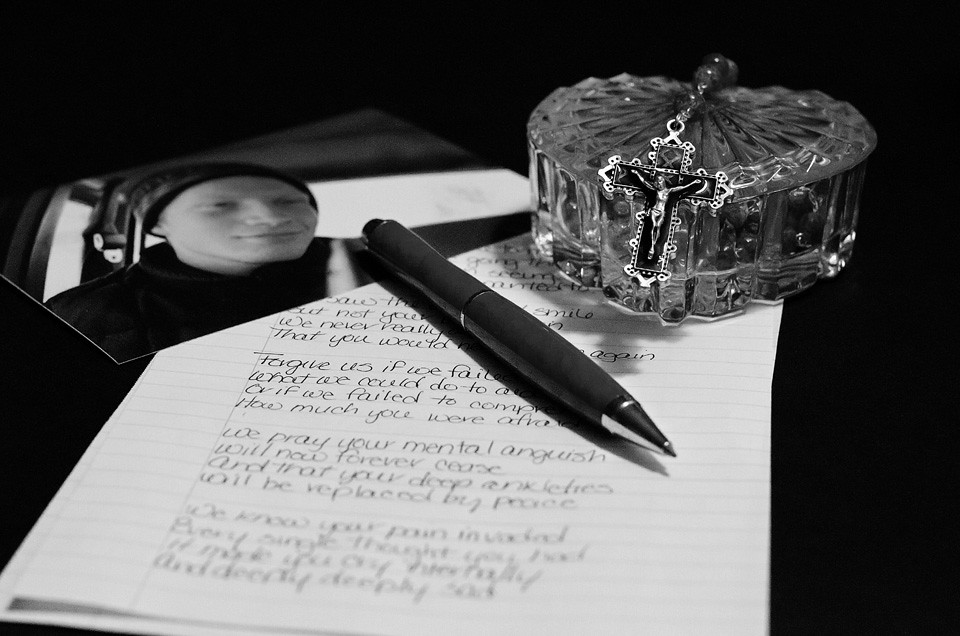 saw the
But not your smile
We never really in
That you would again
Forgive us if we failed
what we could do to
or if we failed to compre
How much you were afraid
We pray your mental anguish
will now forever cease
And that your deep
will be replaced by peace
We know your pain invaded
Every single thought you had
It made you cry internally
And deeply deeply sad